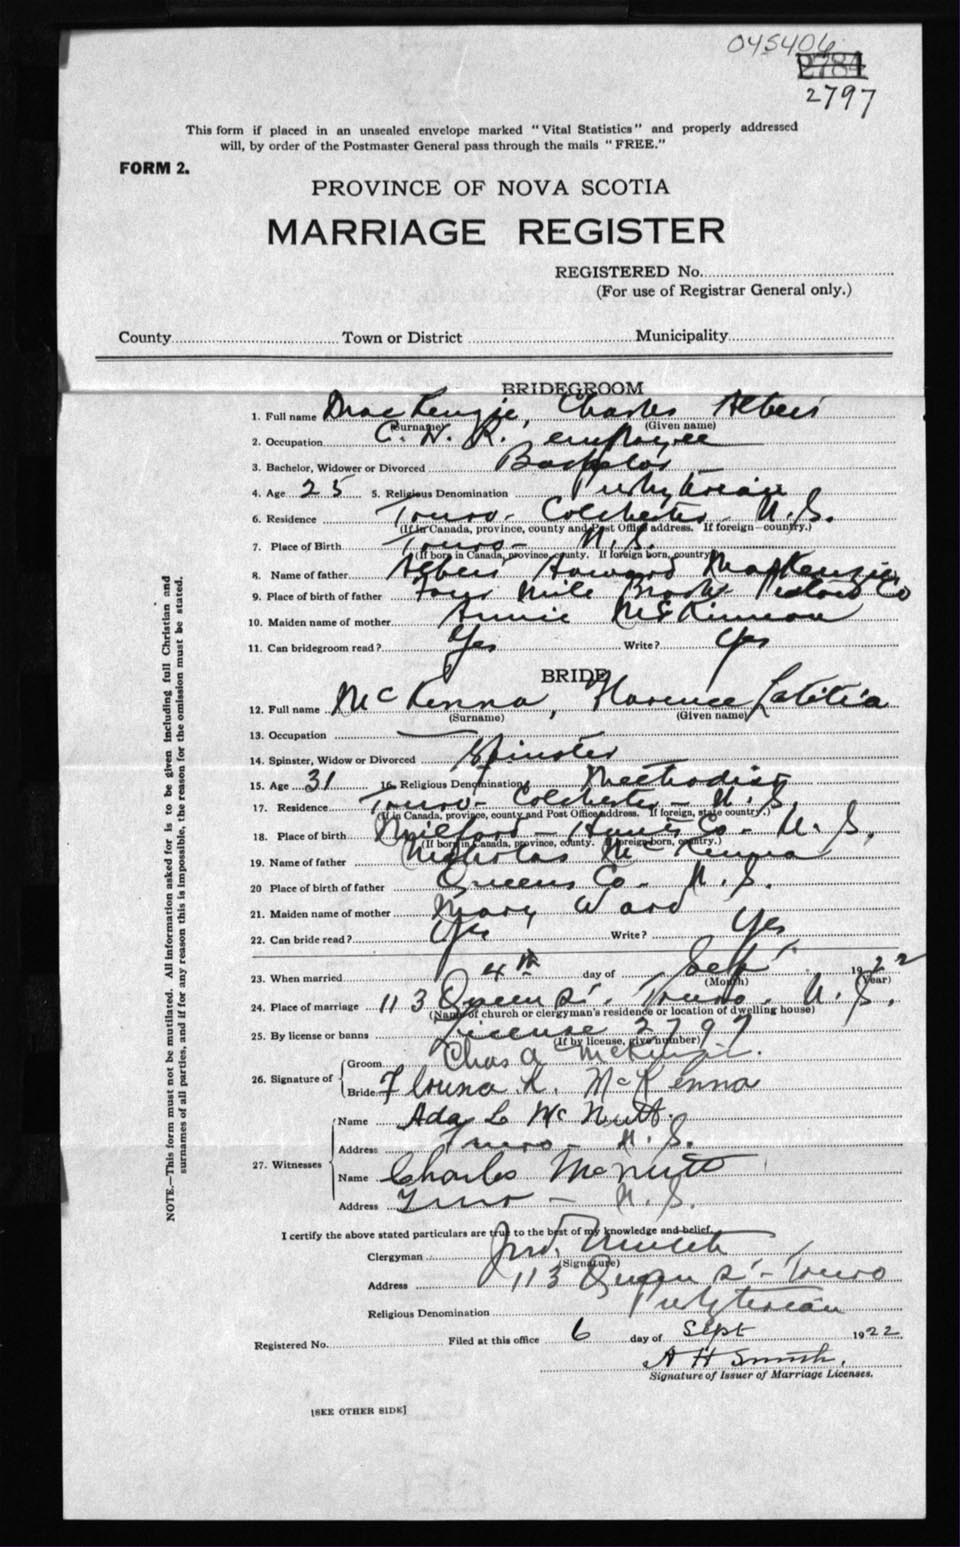 045406
2784
2797
This form if placed in an unsealed envelope marked "Vital Statistics" and properly addressed
will, by order of the Postmaster General pass through the mails "FREE."
FORM 2.
PROVINCE OF NOVA SCOTIA
MARRIAGE REGISTER
REGISTERED No.
(For use of Registrar General only.)
County Town or District Municipality
BRIDEGROOM
1. Full name MacKenzie, Charles Albert
(Surname) (Given name)
2. Occupation C. N. R. employee
3. Bachelor, Widower or Divorced Bachelor
4. Age 25 5. Religious Denomination Presbyterian
6. Residence Truro - Colchester - N.S.
(If in Canada, province, county and Post Office address. If foreign - country.)
7. Place of Birth Truro - N.S.
(If born in Canada, province, county. If foreign born, country)
8. Name of father Albert Howard MacKenzie
9. Place of birth of father Four Mile Brook Pictou Co
10. Maiden name of mother Annie McKinnon
11. Can bridegroom read? Yes Write? Yes
BRIDE
12. Full name McKenna, Florence Latitia
(Surname) (Given name)
13. Occupation —
14. Spinster, Widow or Divorced Spinster
15. Age 31 16. Religious Denomination Methodist
17. Residence Truro - Colchester - N.S.
(If in Canada, province, county and Post Office address. If foreign, state country.)
18. Place of birth Milford - Hants Co - N.S.
(If born in Canada, province, county. If foreign born, country.)
19. Name of father Nicholas McKenna
20 Place of birth of father Queens Co - N.S.
21. Maiden name of mother Mary Ward
22. Can bride read? Yes Write? Yes
23. When married 4th day of Sept 1922
(Month) (Year)
24. Place of marriage 113 Queen St. Truro. N.S.
(Name of church or clergyman's residence or location of dwelling house)
25. By license or banns License 2797
(If by license, give number)
26. Signature of Groom Chas A McKenzie.
Bride L. McKenna
27. Witnesses Name Ada L McNutt.
Address Truro - N.S.
Name Charles McNutt
Address Truro - N.S.
I certify the above stated particulars are true to the best of my knowledge and belief.
Clergyman
(Signature)
Address 113 Queen St - Truro
Religious Denomination Presbyterian
Registered No. Filed at this office 6 day of Sept 1922
A H Smith.
Signature of Issuer of Marriage Licenses.
[SEE OTHER SIDE]
NOTE.—This form must not be mutilated. All information asked for is to be given including full Christian and
surnames of all parties, and if for any reason this is impossible, the reason for the omission must be stated.